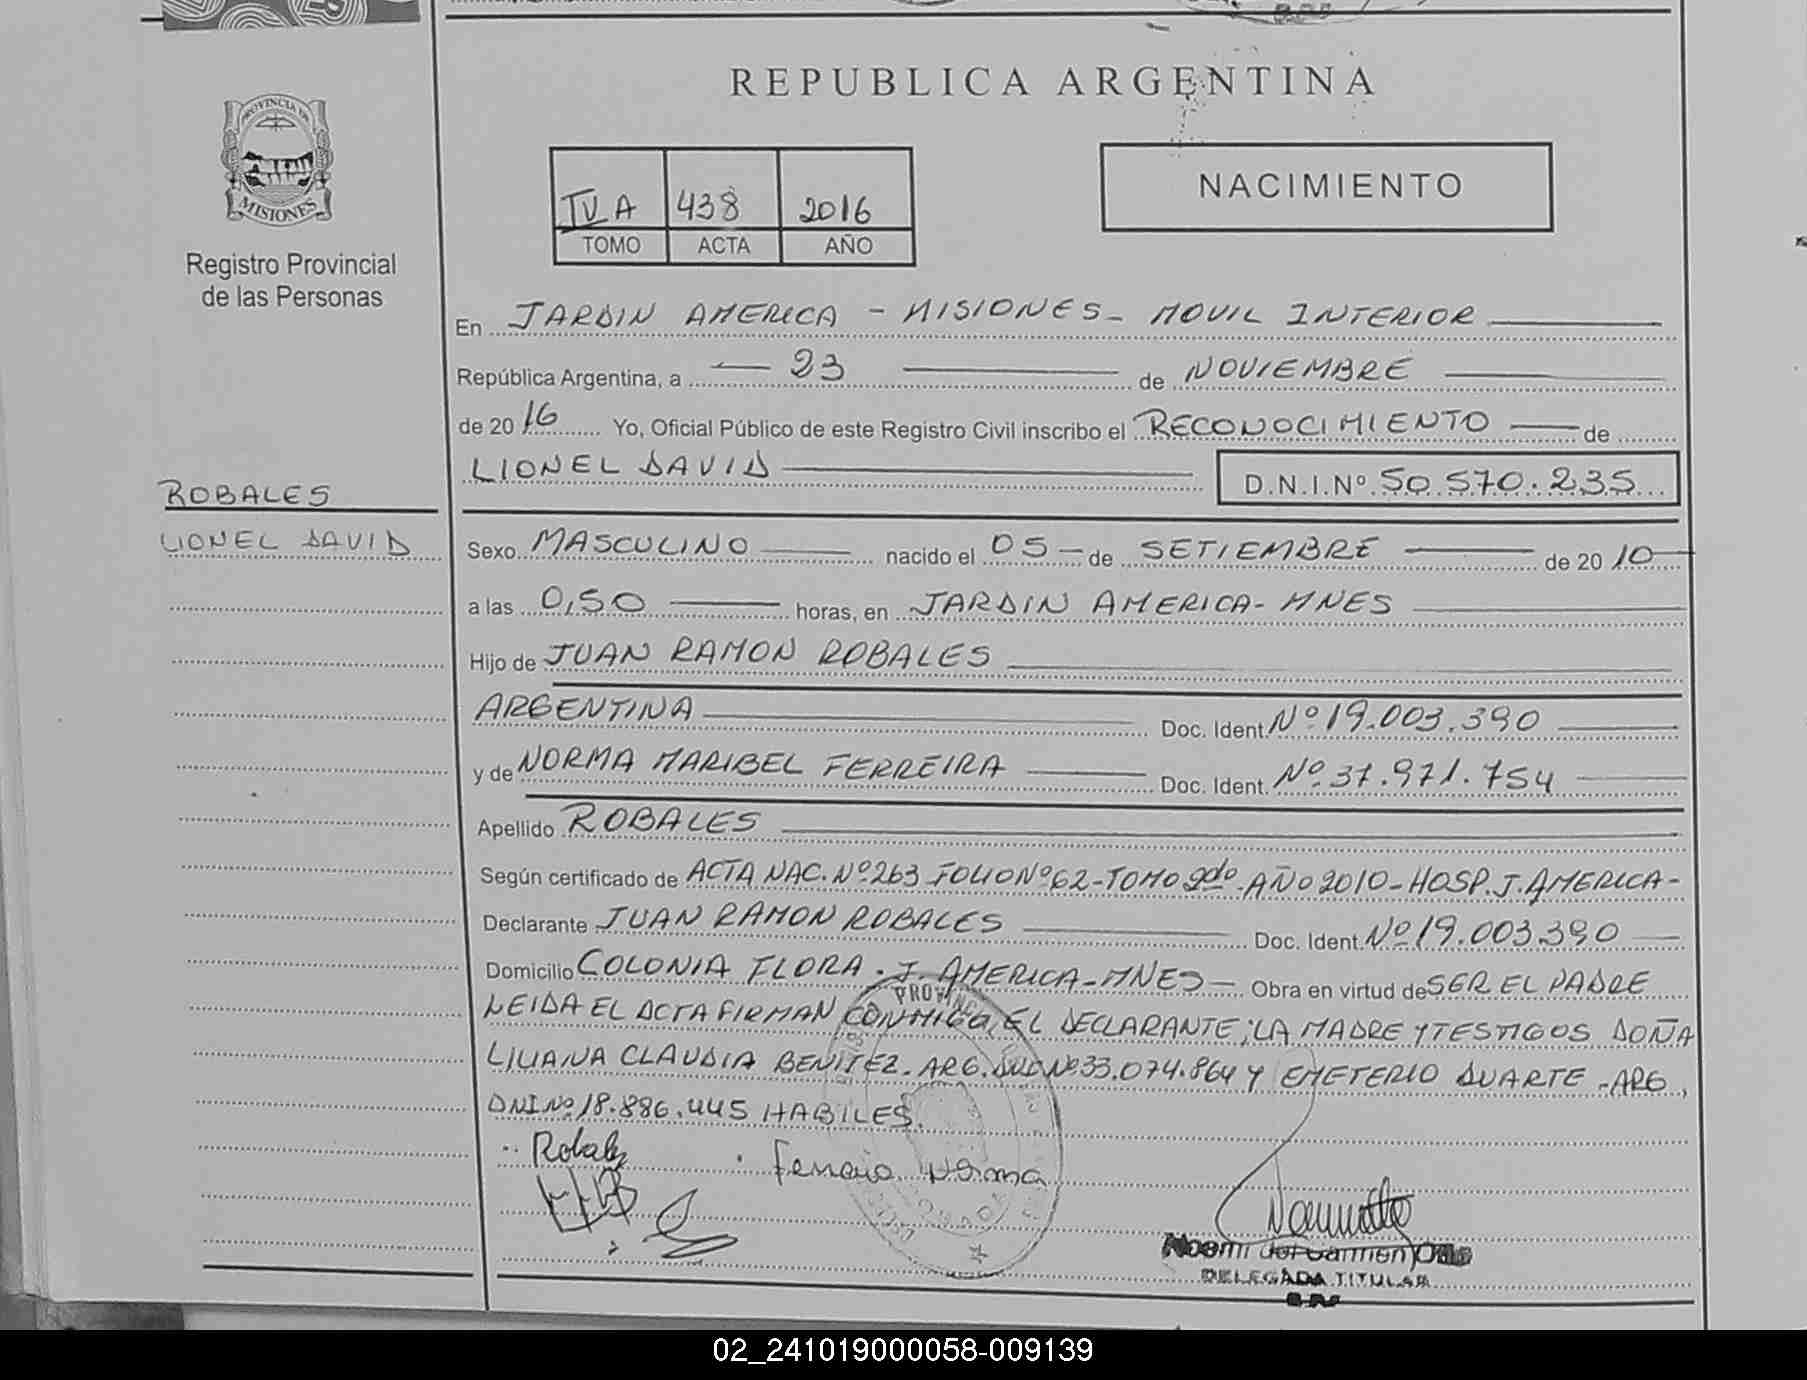 REPUBLICA ARGENTINA
PROVINCIA DE
MISIONES
Registro Provincial
de las Personas
IV A 438 2016
TOMO ACTA AÑO
NACIMIENTO
En JARDIN AMERICA - MISIONES - MOVIL INTERIOR
República Argentina, a 23 de NOVIEMBRE
de 2016 Yo, Oficial Público de este Registro Civil inscribo el RECONOCIMIENTO de
LIONEL DAVID D.N.I.Nº 50.570.235
ROBALES
LIONEL DAVID
Sexo MASCULINO nacido el 05 de SETIEMBRE de 2010
a las 0,50 horas, en JARDIN AMERICA - MNES
Hijo de JUAN RAMON ROBALES
ARGENTINA Doc. Ident. Nº 19.003.390
y de NORMA MARIBEL FERREIRA Doc. Ident. Nº 37.971.754
Apellido ROBALES
Según certificado de ACTA NAC. Nº 263 FOLIO Nº 62 - TOMO 2do - AÑO 2010 - HOSP. J. AMERICA -
Declarante JUAN RAMON ROBALES Doc. Ident. Nº 19.003.390
Domicilio COLONIA FLORA. J. AMERICA - MNES - Obra en virtud de SER EL PADRE
LEIDA EL ACTA FIRMAN CONMIGO, EL DECLARANTE, LA MADRE Y TESTIGOS DOÑA
LILIANA CLAUDIA BENITEZ - ARG. DNI Nº 33.074.864 Y EMETERIO DUARTE - ARG,
DNI Nº 18.886.445 HABILES.
Robales
Ferreira Norma
Noemi del Carmen
DELEGADA TITULAR
02_241019000058-009139